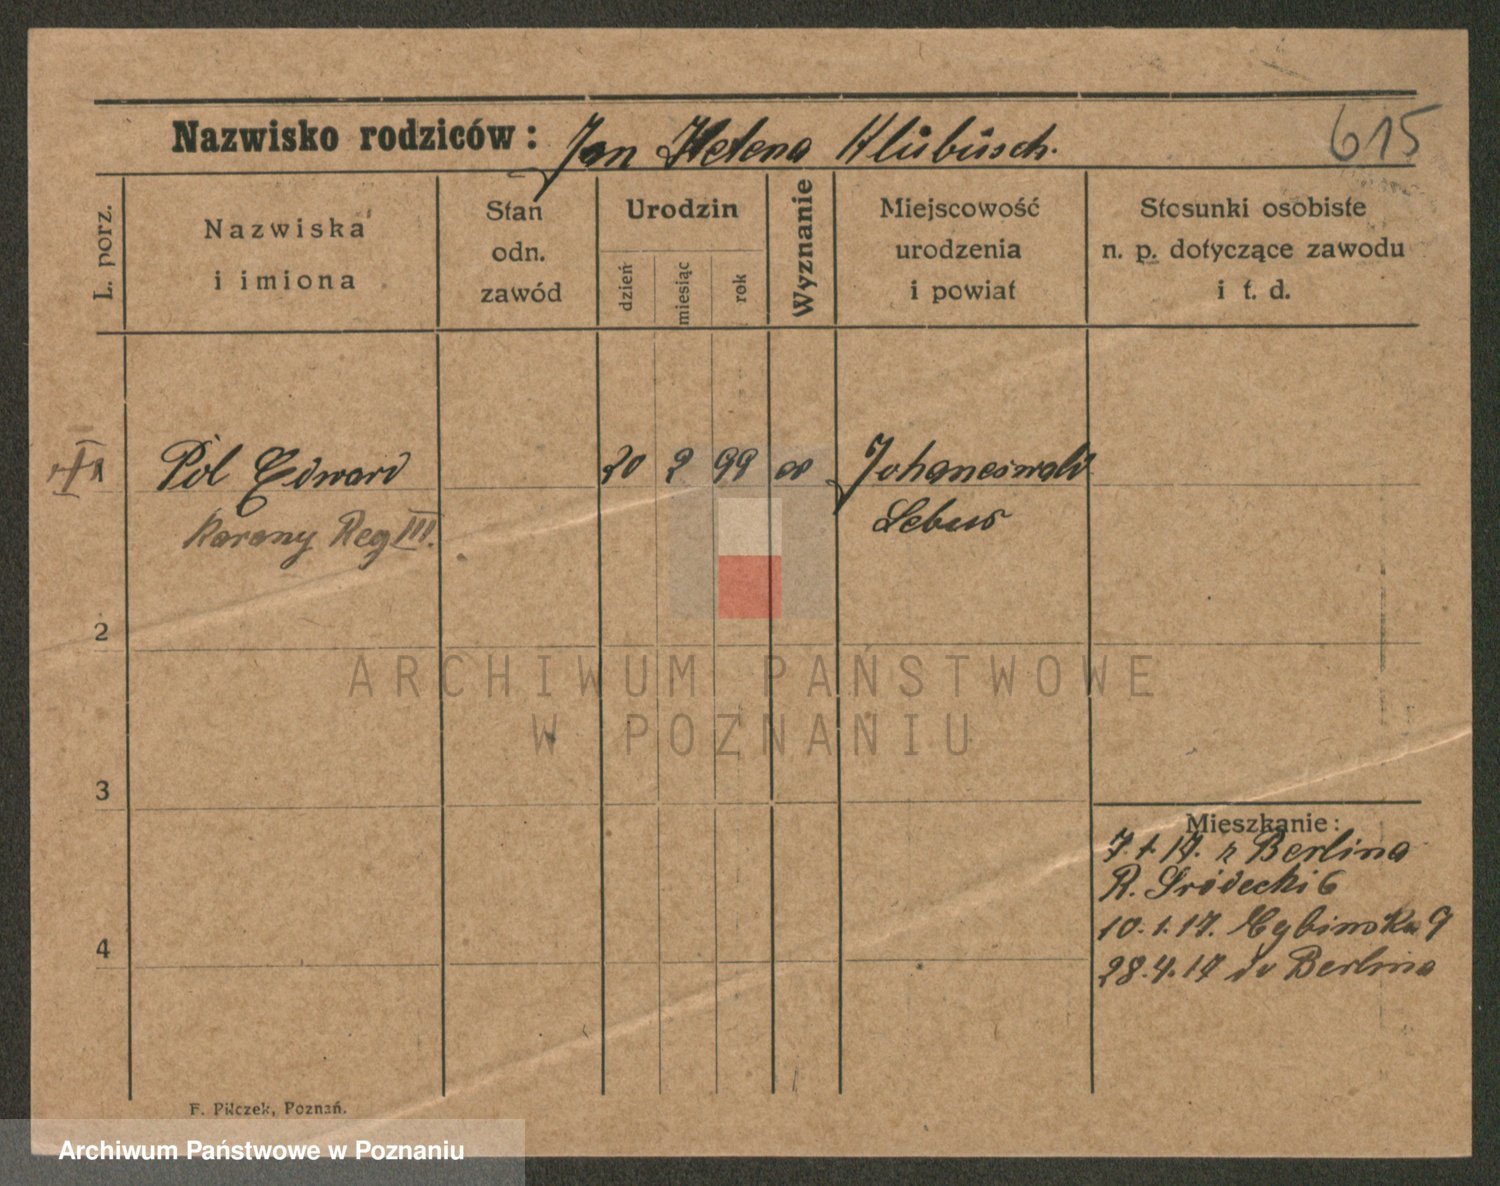 615
Nazwisko rodziców: Jan Helena Klübüsch.
L. porz.
Nazwiska
i imiona
Stan
odn.
zawód
Urodzin
dzień
miesiąc
rok
Wyznanie
Miejscowość
urodzenia
i powiat
Stosunki osobiste
n. p. dotyczące zawodu
i t. d.
1 Pol Edward 20 2 99 Johaneswald
Karany Reg III. Lebus
2
ARCHIWUM PAŃSTWOWE
W POZNANIU
3
Mieszkanie:
7.1.17. z Berlina
R. Sródecki 6
4
10.1.17. 9
28.4.17 do Berlina
F. Pilczek, Poznań.
Archiwum Państwowe w Poznaniu